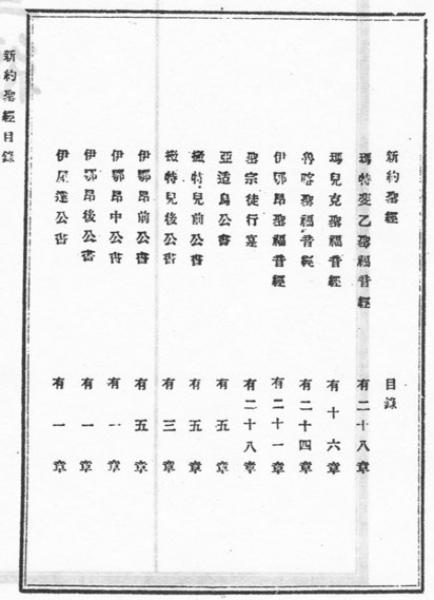 新約聖經 目錄
瑪特斐乙聖福音經 有二十八章
瑪兒克聖福音經 有十六章
魯喀聖福音經 有二十四章
伊鄂昂聖福音經 有二十一章
聖宗徒行實 有二十八章
亞适烏公書 有五章
撇特兒前公書 有五章
撇特兒後公書 有三章
伊鄂昂前公書 有五章
伊鄂昂中公書 有一章
伊鄂昂後公書 有一章
伊屋達公書 有一章
新約聖經目錄